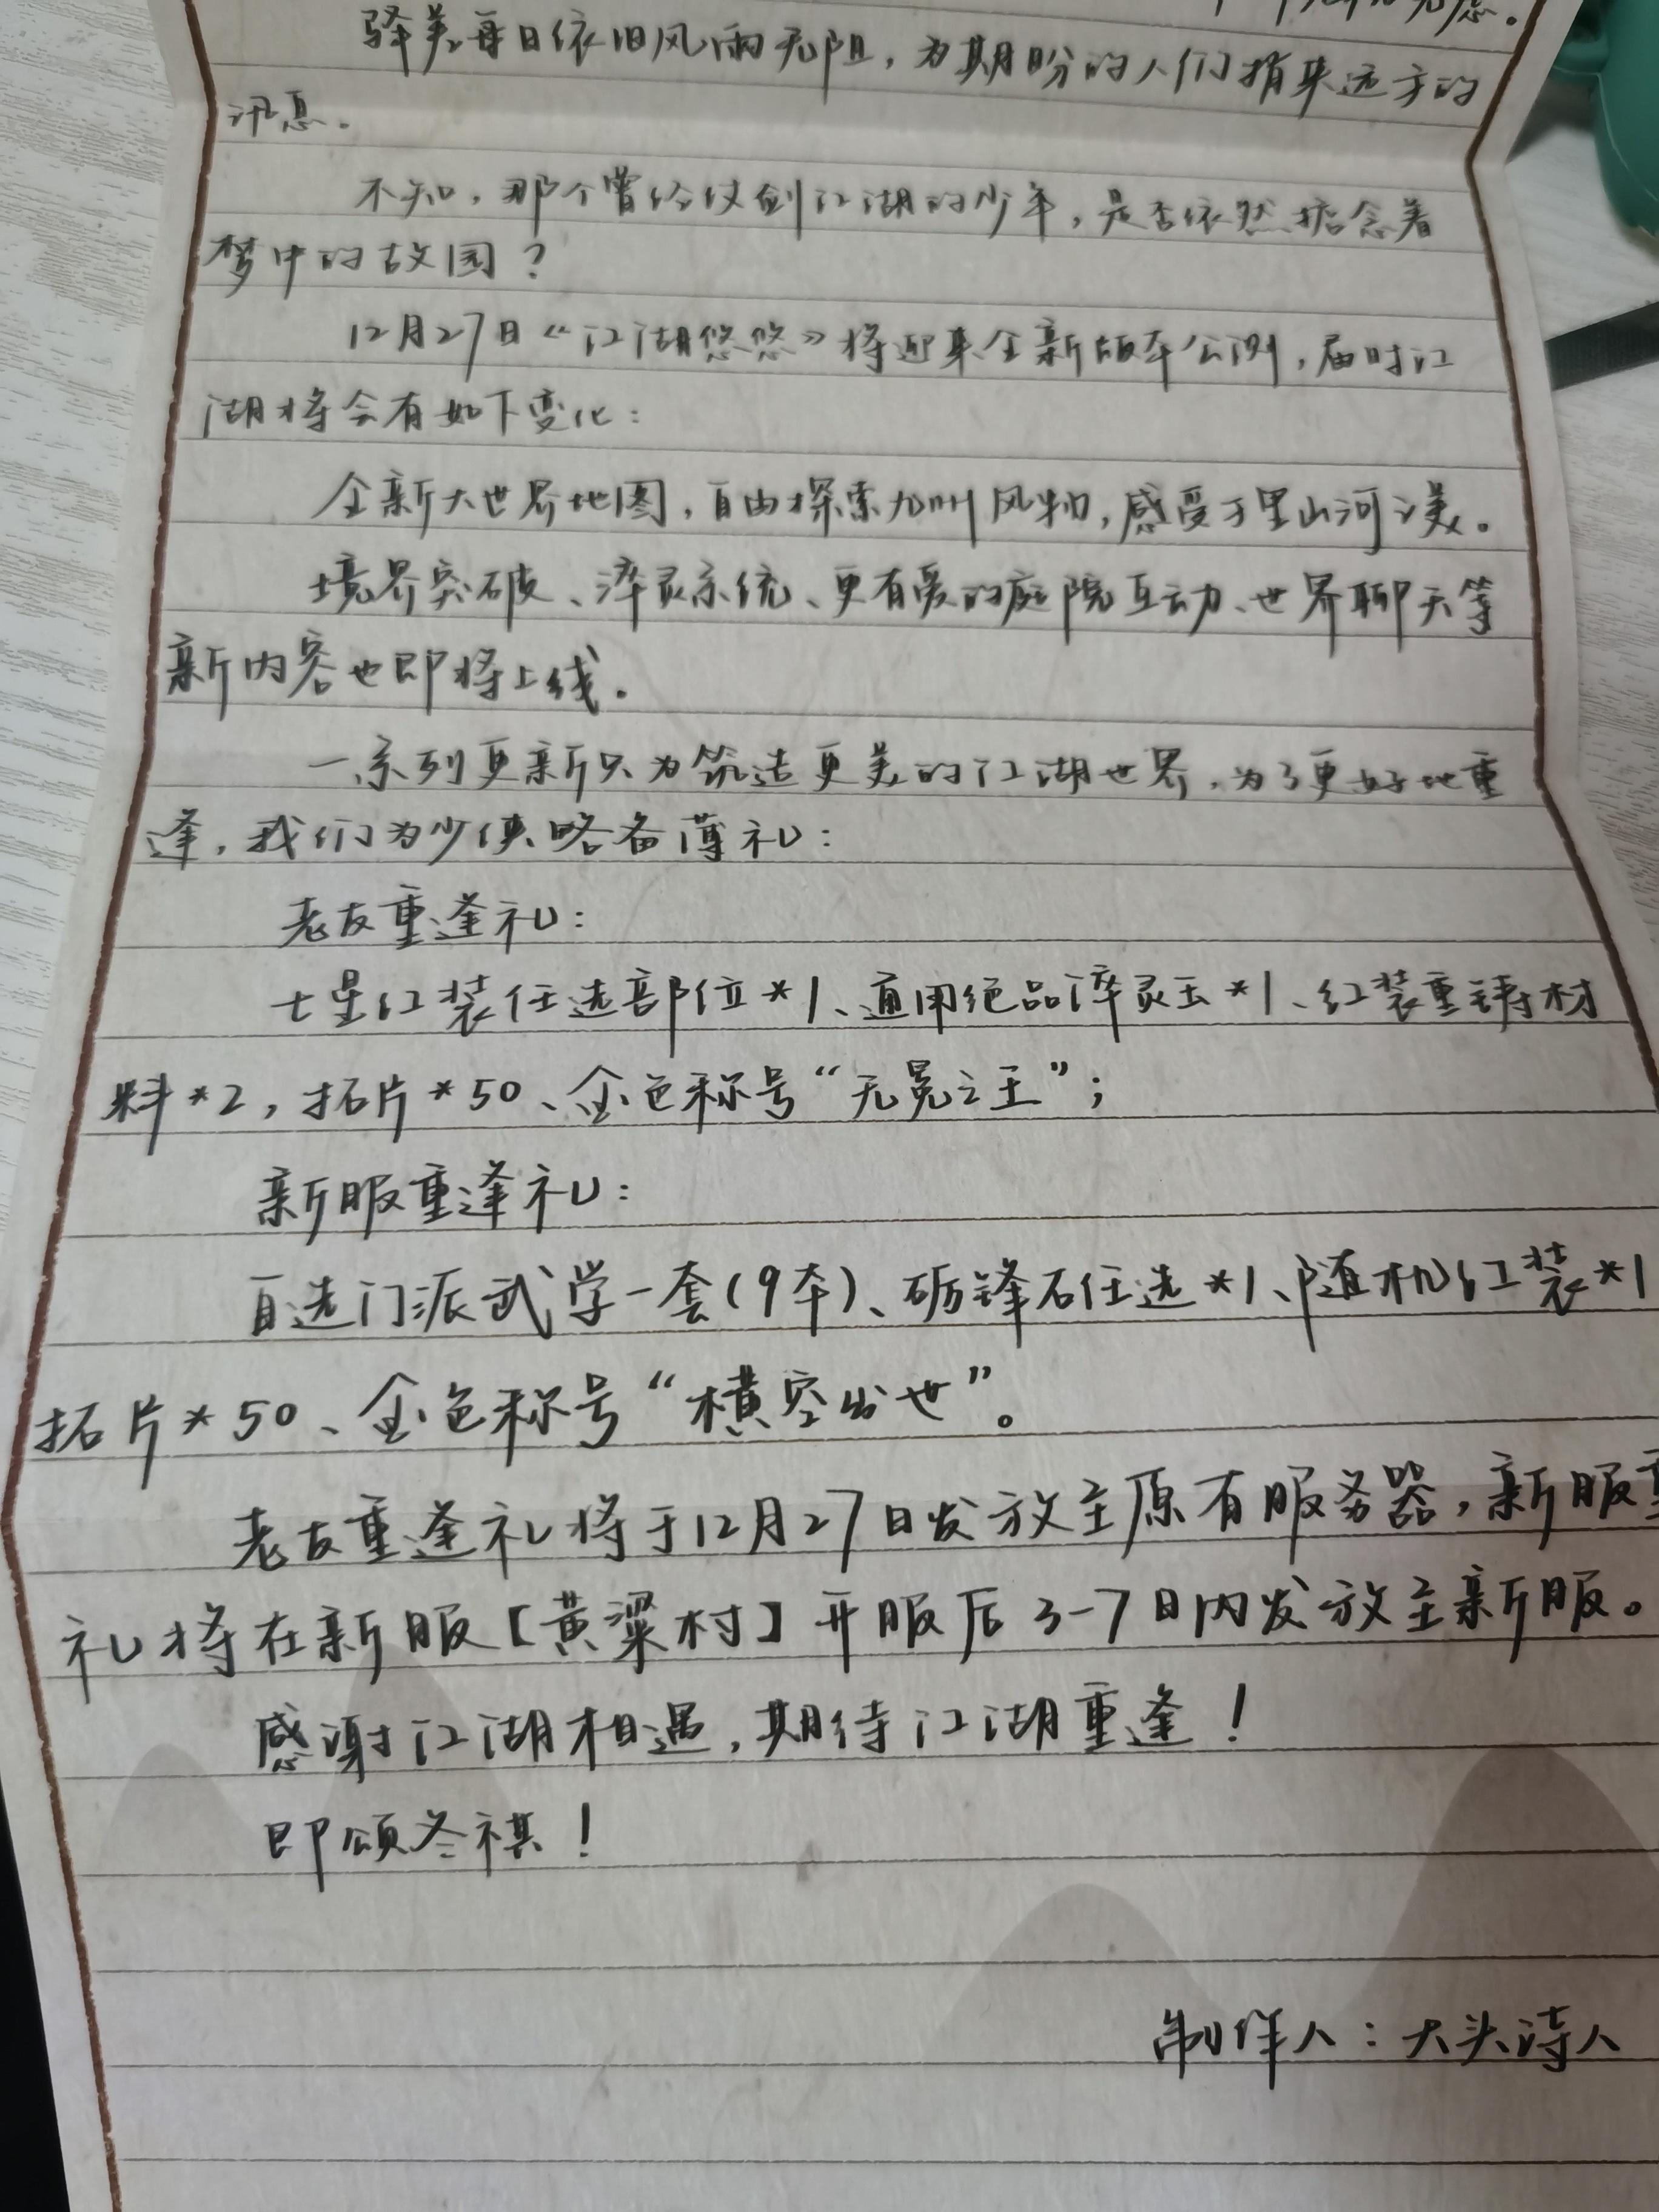 驿差每日依旧风雨无阻，为期盼的人们捎来远方的
讯息。
不知，那个曾经仗剑江湖的少年，是否依然惦念着
梦中的故园？
12月27日《江湖悠悠》将迎来全新版本公测，届时江
湖将会有如下变化：
全新大世界地图，自由探索九州风物，感受万里山河之美。
境界突破、淬灵系统、更有爱的庭院互动、世界聊天等
新内容也即将上线。
一系列更新只为筑造更美的江湖世界，为了更好地重
逢，我们为少侠略备薄礼：
老友重逢礼：
七星红装任选部位*1、通用绝品淬灵玉*1、红装重铸材
料*2，拓片*50、金色称号“无冕之王”；
新服重逢礼：
自选门派武学一套(9本)、砺锋石任选*1、随机红装*1
拓片*50、金色称号“横空出世”。
老友重逢礼将于12月27日发放至原有服务器，新服重
礼将在新服【黄粱村】开服后3-7日内发放至新服。
感谢江湖相遇，期待江湖重逢！
即颂冬祺！
制作人：大头诗人